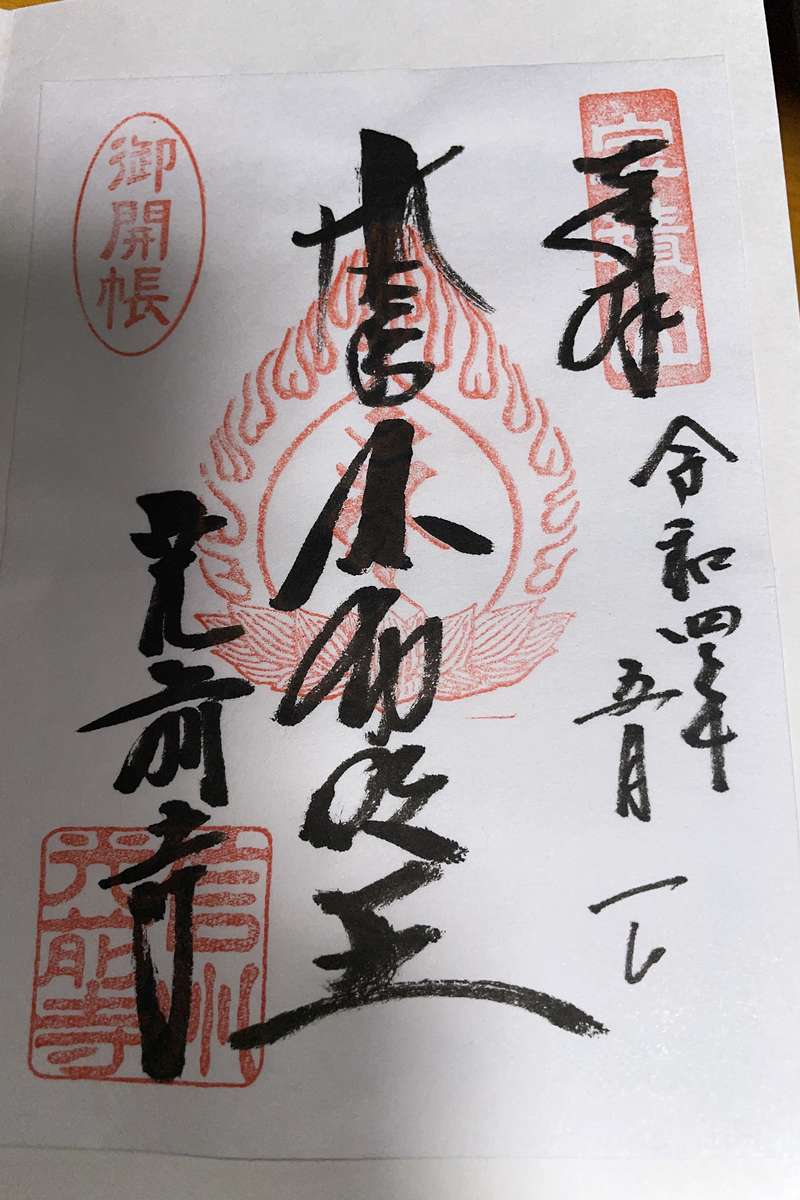 宝積山
奉拝
令和四年
五月
不動明王
御開帳
光前寺
信州
光前寺